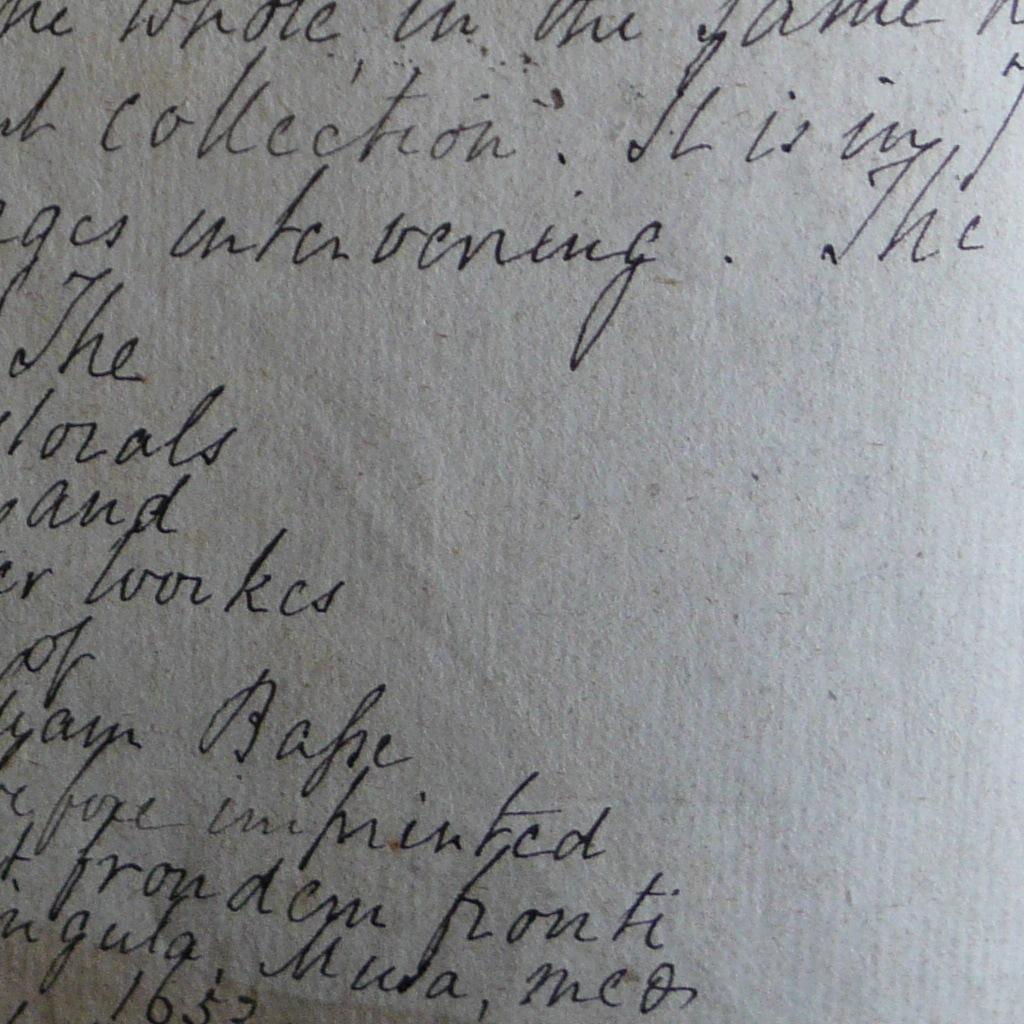 he whole in the same
collection. It is in
ges intervening. The
The
torals
and
er workes
of
lyam Basse
efore imprinted
frondem fronti
ingula, Musa, meæ
1653